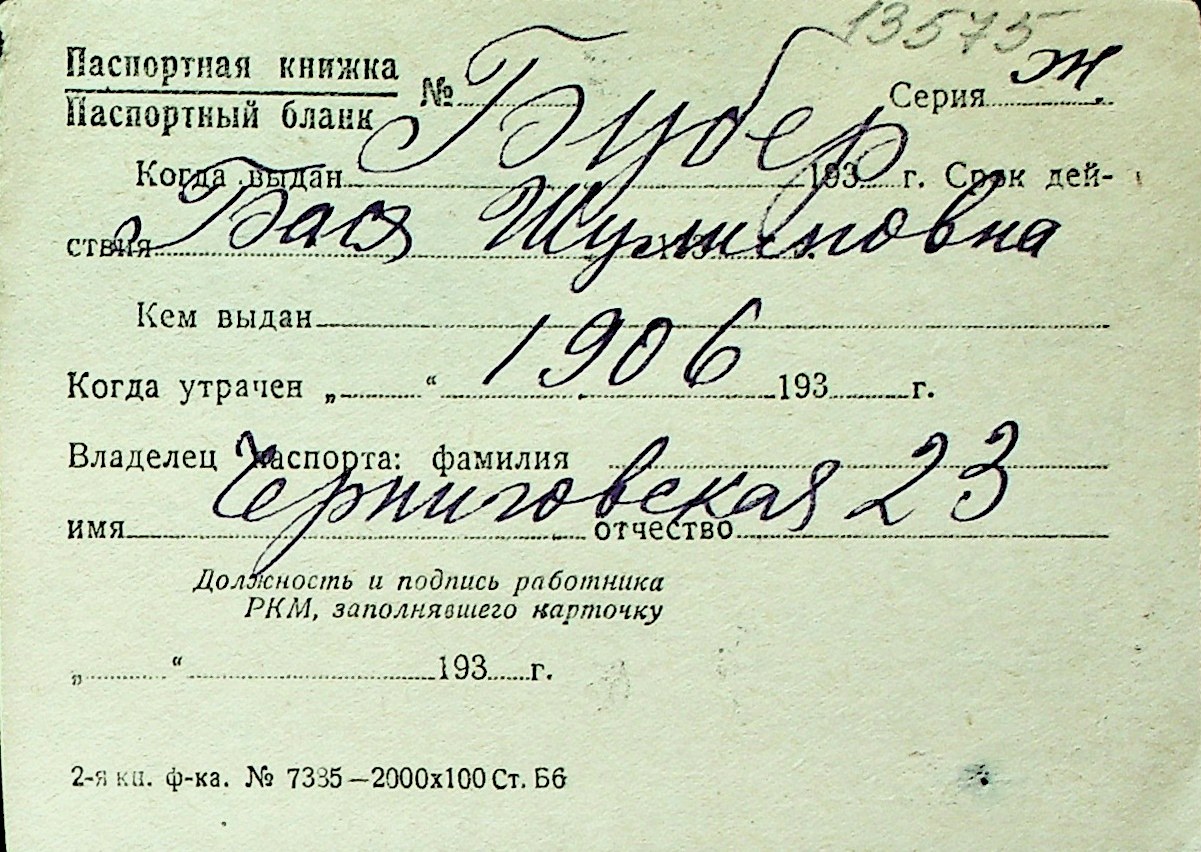 13575
ж
Паспортная книжка
Паспортный бланк № Серия
Бубер
Когда выдан 193 г. Срок дей-
ствия 193 г.
Бася Шулимовна
Кем выдан
1906
Когда утрачен „ “ 193 г.
Владелец паспорта: фамилия
Черниговская 23
имя отчество
Должность и подпись работника
РКМ, заполнявшего карточку
„ “ 193 г.
2-я кн. ф-ка. № 7335—2000х100 Ст. Б6